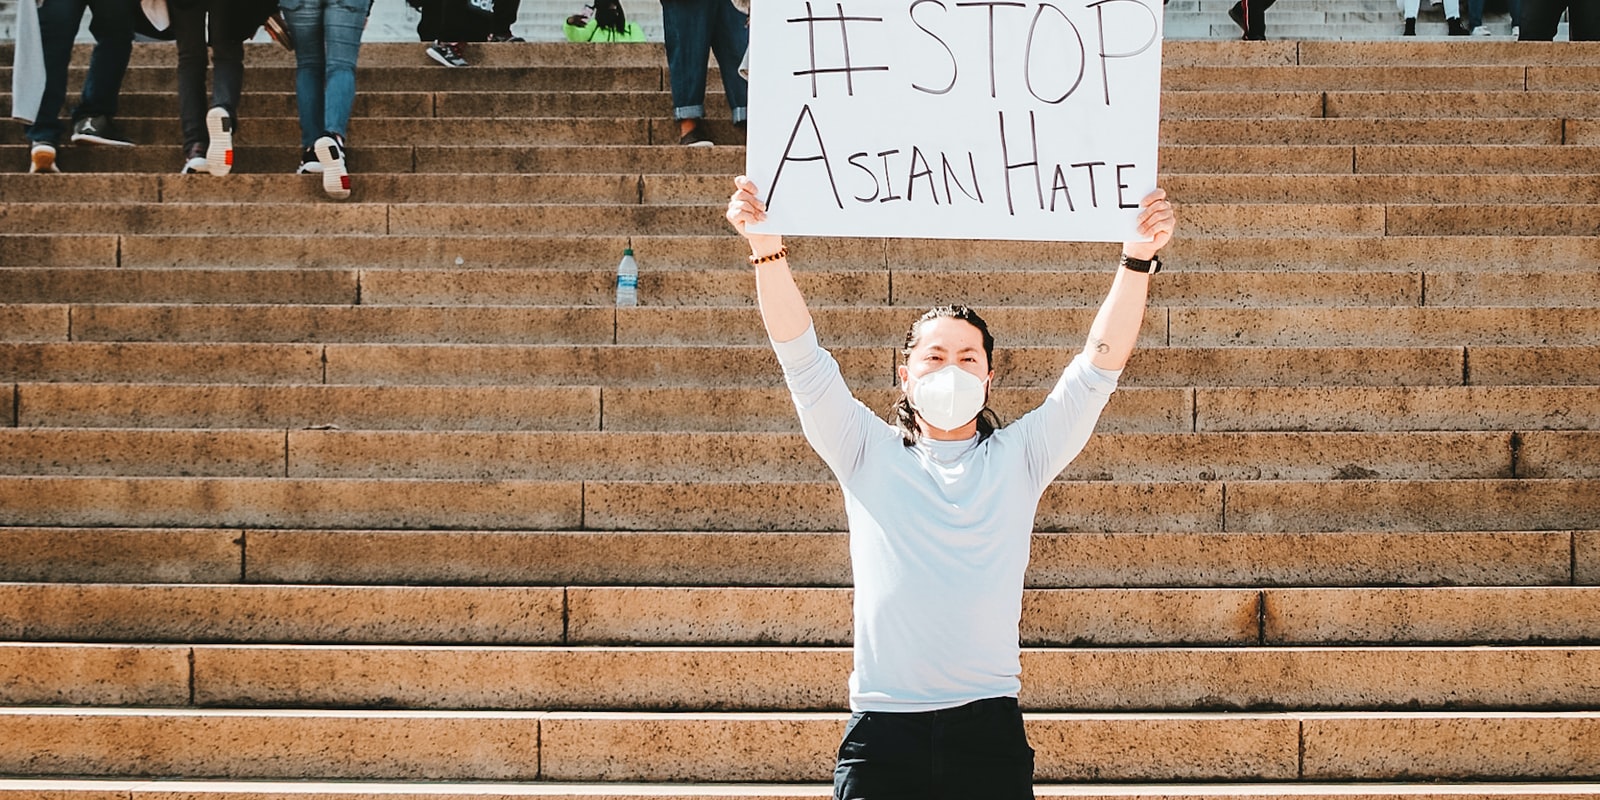 #STOP
ASIAN HATE